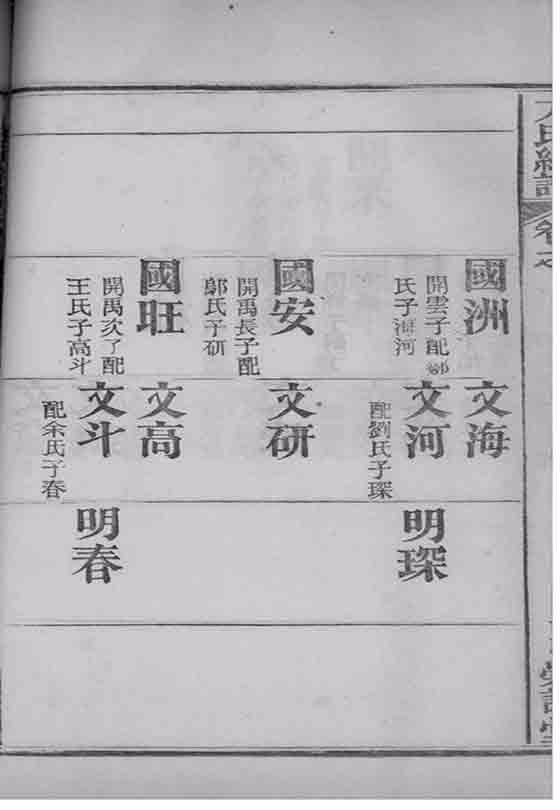 國洲
開雲子配鄒
氏子海河
國安
開禹長子配
鄔氏子研
國旺
開禹次了配
王氏子高斗
文海
文河
配劉氏子琛
文研
文高
文斗
配余氏子春
明琛
明春